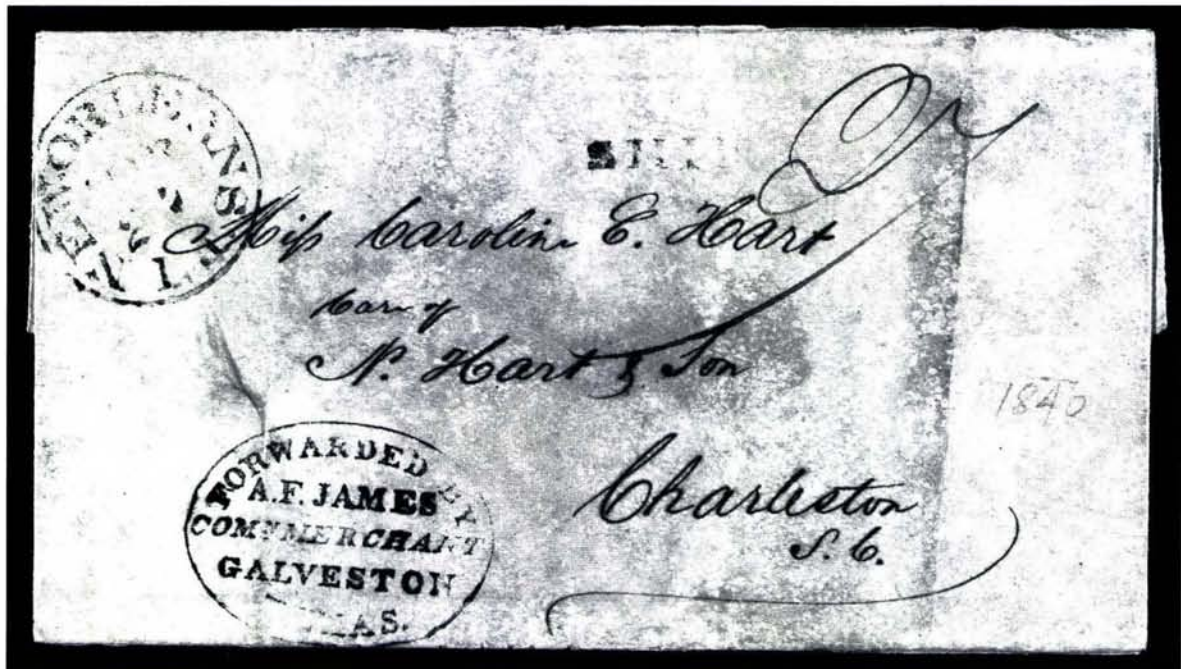 NEW ORLEANS LA
SHIP
Miss Caroline E. Hart
Care of
N. Hart & Son
Charleston
S. C.
1840
FORWARDED BY
A.F. JAMES
COMN MERCHANT
GALVESTON
TEXAS.